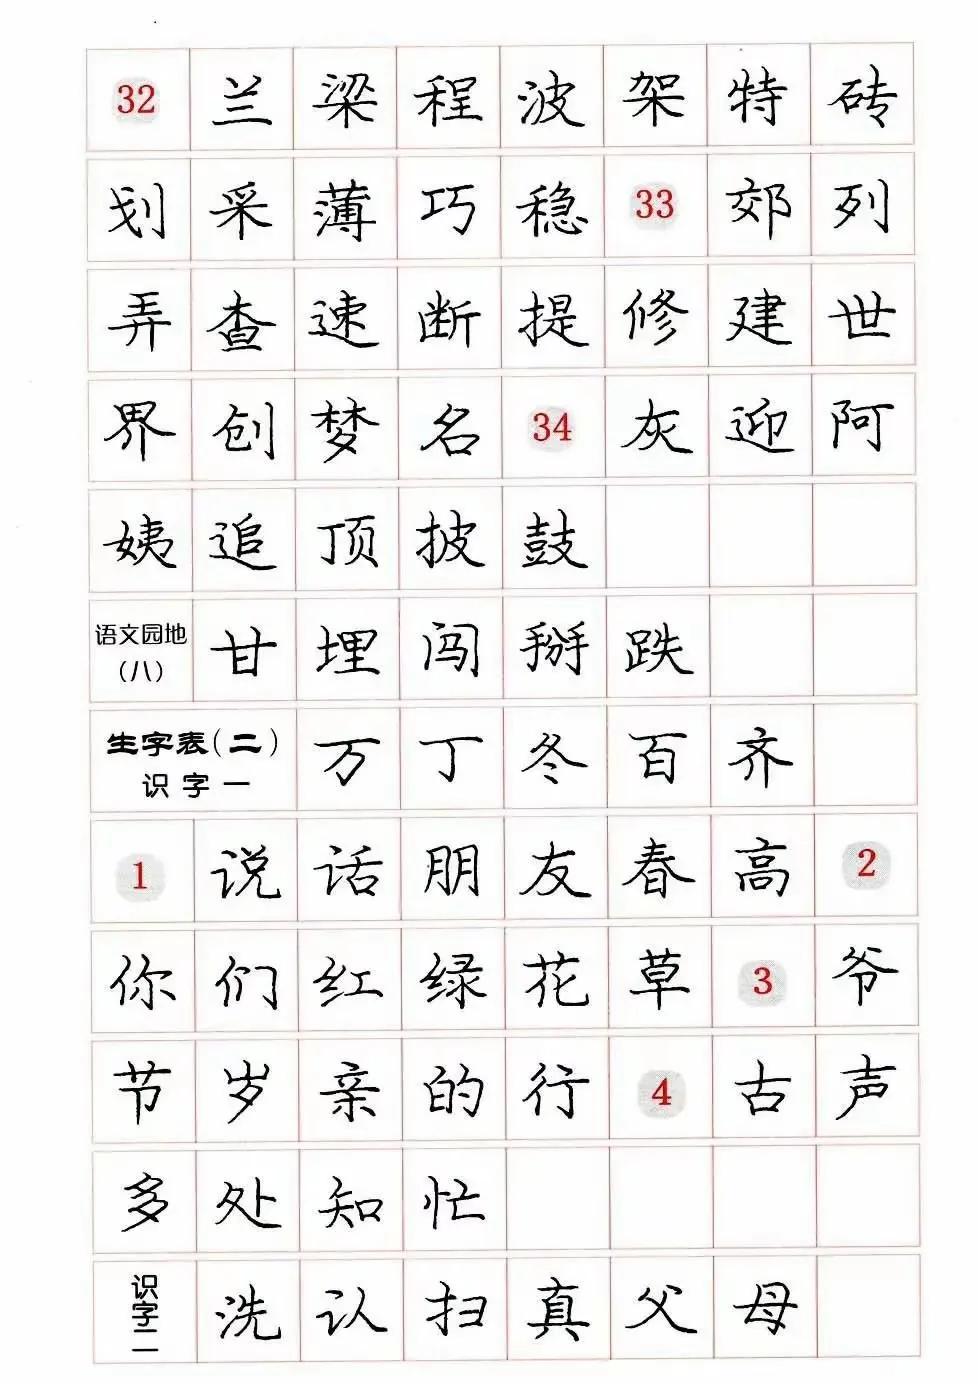 32 兰 梁 程 波 架 特 砖
划 采 薄 巧 稳 33 郊 列
弄 查 速 断 提 修 建 世
界 创 梦 名 34 灰 迎 阿
姨 追 顶 披 鼓
语文园地 甘 埋 闯 掰 跌
(八)
生字表(二) 万 丁 冬 百 齐
识字一
1 说 话 朋 友 春 高 2
你 们 红 绿 花 草 3 爷
节 岁 亲 的 行 4 古 声
多 处 知 忙
识字二 洗 认 扫 真 父 母